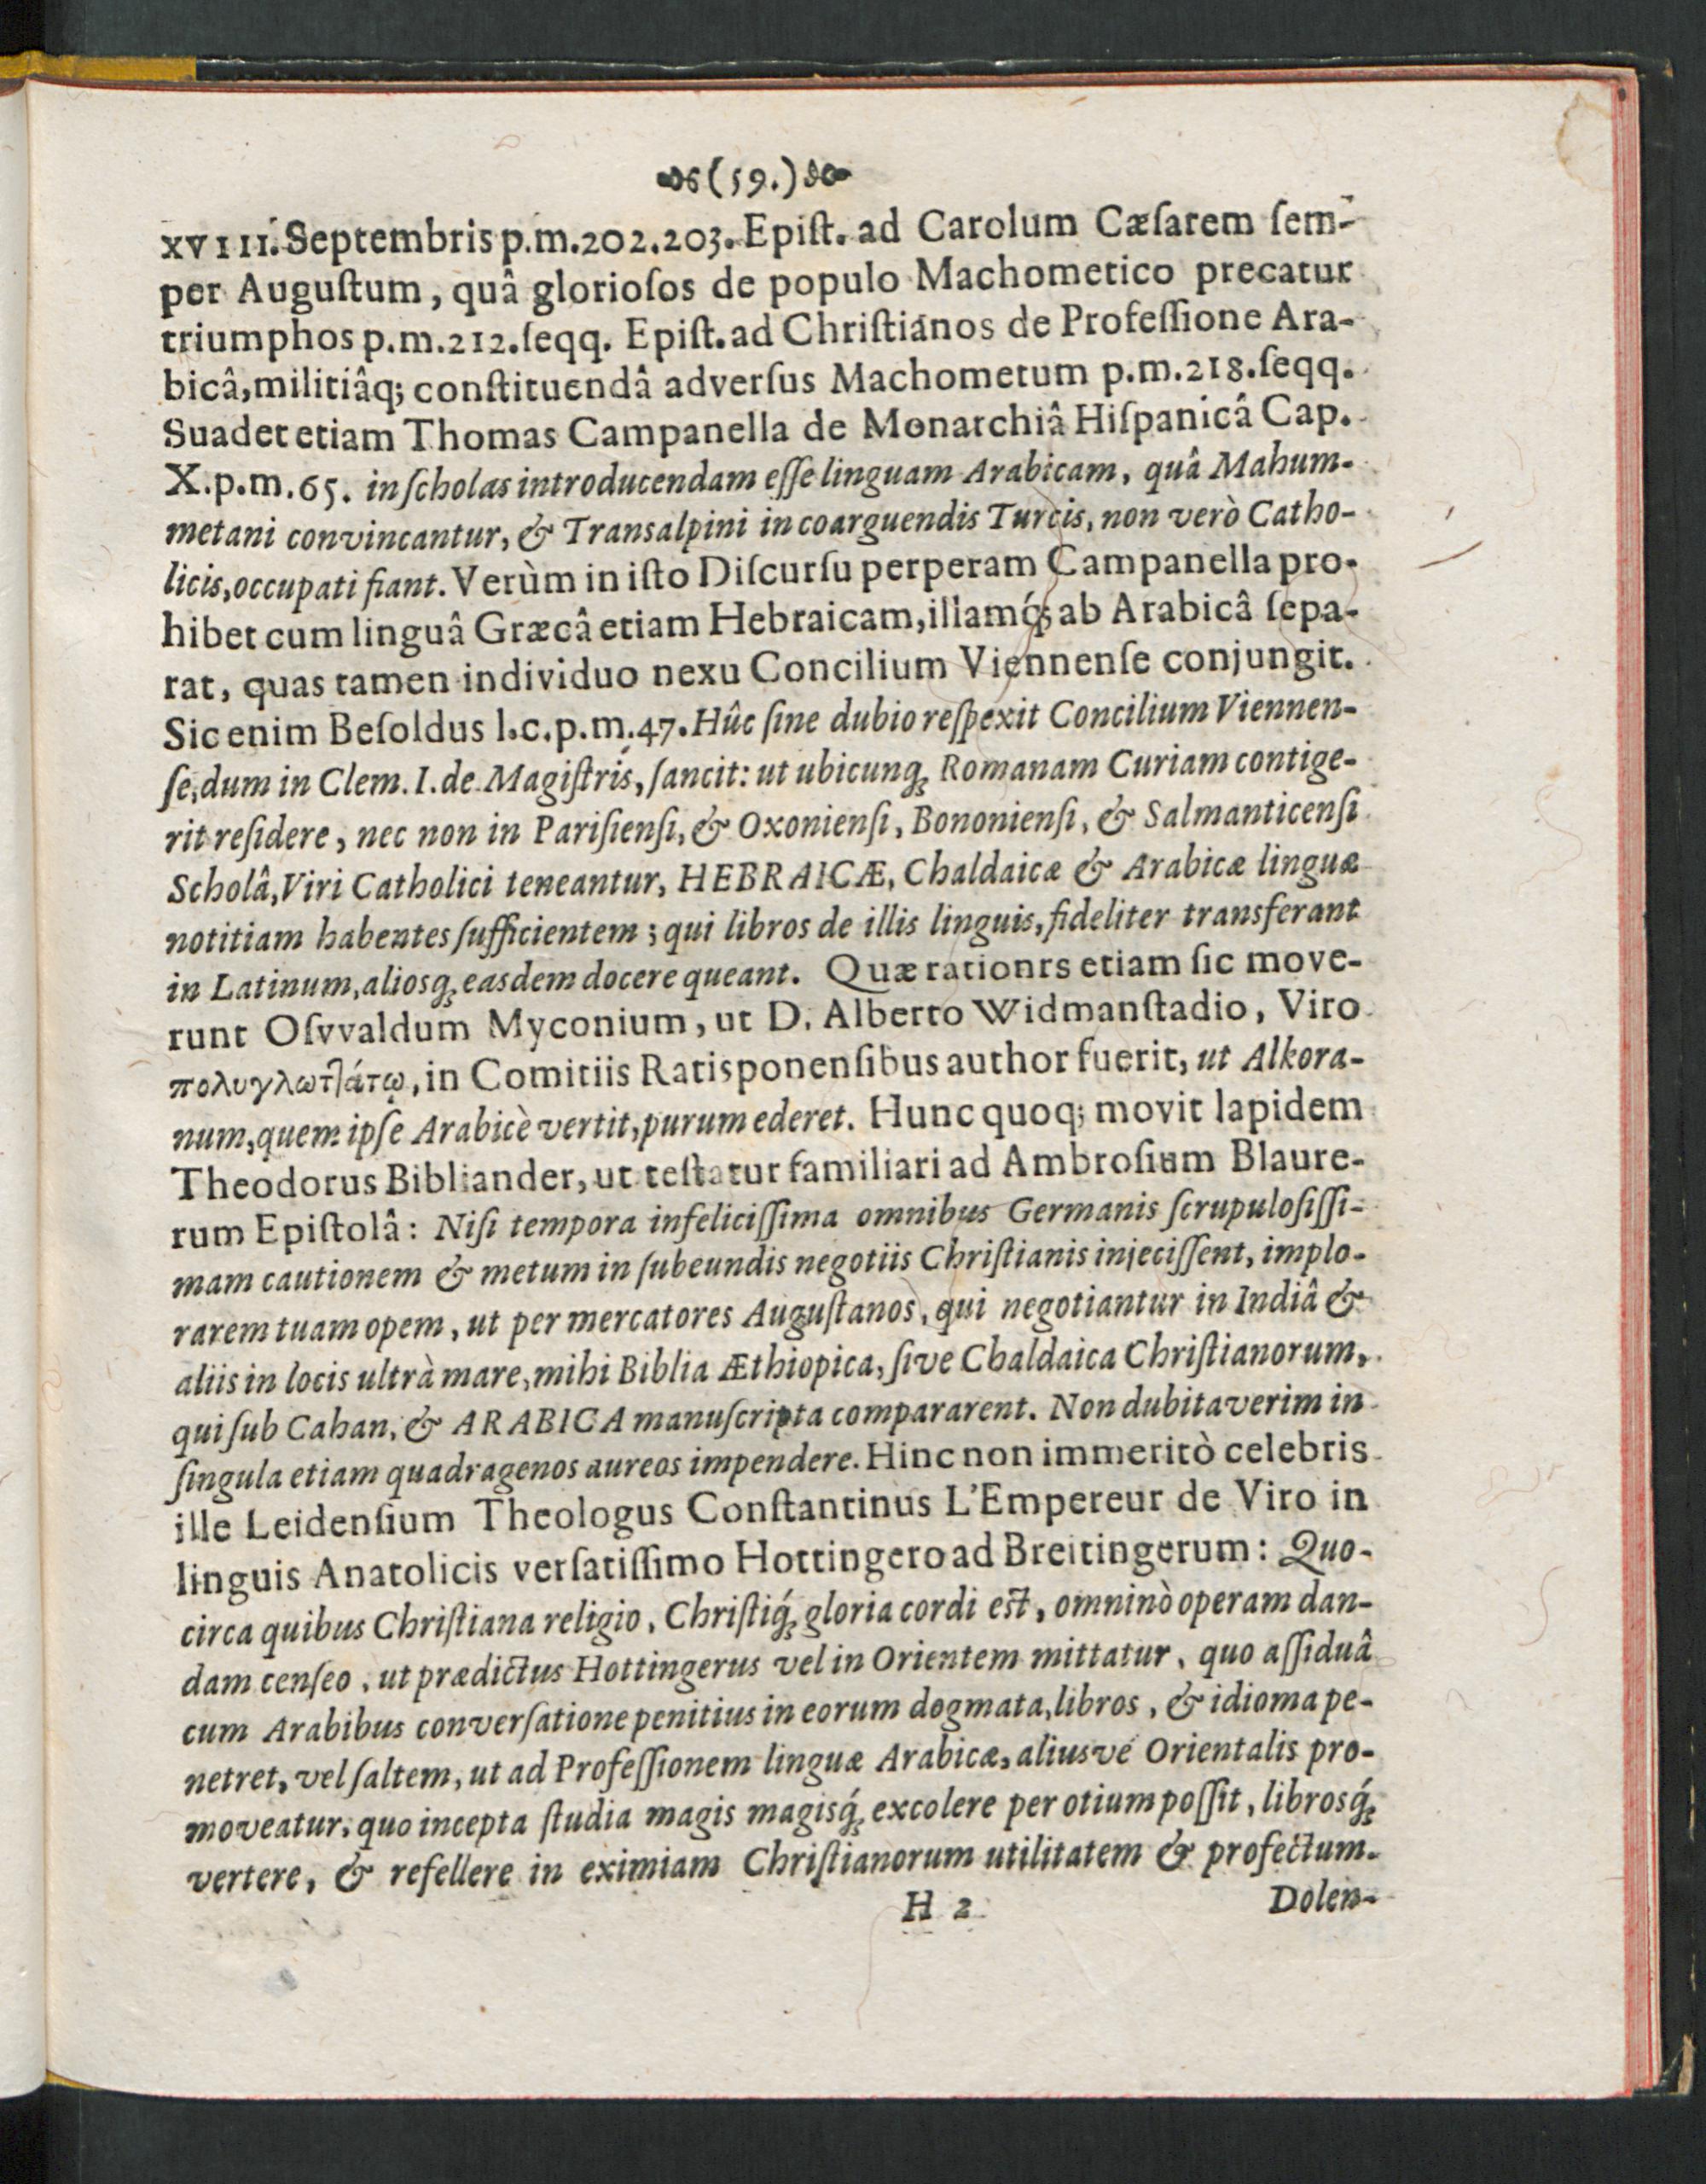 (59.)
XVIII. Septembris p.m.202.203. Epiſt. ad Carolum Cæſarem ſem-
per Auguſtum, quâ glorioſos de populo Machometico precatur
triumphos p.m.212.ſeqq. Epiſt. ad Chriſtianos de Profeſſione Ara-
bicâ, militiâq; conſtituendâ adverſus Machometum p.m.218.ſeqq.
Suadet etiam Thomas Campanella de Monarchiâ Hiſpanicâ Cap.
X.p.m.65. in ſcholas introducendam eſſe linguam Arabicam, quâ Mahum-
metani convincantur, & Transalpini in coarguendis Turcis, non verò Catho-
licis, occupati fiant. Verùm in iſto Diſcurſu perperam Campanella pro-
hibet cum linguâ Græcâ etiam Hebraicam, illamq́; ab Arabicâ ſepa-
rat, quas tamen individuo nexu Concilium Viennenſe conjungit.
Sic enim Beſoldus l.c.p.m.47. Hûc ſine dubio reſpexit Concilium Viennen-
ſe, dum in Clem. I. de Magiſtris, ſancit: ut ubicunq; Romanam Curiam contige-
rit reſidere, nec non in Pariſienſi, & Oxonienſi, Bononienſi, & Salmanticenſi
Scholâ, Viri Catholici teneantur, HEBRAICÆ, Chaldaicæ & Arabicæ linguæ
notitiam habentes ſufficientem; qui libros de illis linguis, fideliter transferant
in Latinum, aliosq; easdem docere queant. Quæ rationrs etiam ſic move-
runt Oſvvaldum Myconium, ut D. Alberto Widmanſtadio, Viro
πολυγλωττάτῳ, in Comitiis Ratisponenſibus author fuerit, ut Alkora-
num, quem ipſe Arabicè vertit, purum ederet. Hunc quoq; movit lapidem
Theodorus Bibliander, ut teſtatur familiari ad Ambroſium Blaure-
rum Epiſtolâ: Niſi tempora infeliciſſima omnibus Germanis ſcrupuloſiſſi-
mam cautionem & metum in ſubeundis negotiis Chriſtianis injeciſſent, implo-
rarem tuam opem, ut per mercatores Auguſtanos, qui negotiantur in Indiâ &
aliis in locis ultrà mare, mihi Biblia Æthiopica, ſive Chaldaica Chriſtianorum,
qui ſub Cahan, & ARABICA manuſcripta compararent. Non dubitaverim in
ſingula etiam quadragenos aureos impendere. Hinc non immeritò celebris
ille Leidenſium Theologus Conſtantinus L'Empereur de Viro in
linguis Anatolicis verſatiſſimo Hottingero ad Breitingerum: Quo-
circa quibus Chriſtiana religio, Chriſtiq́; gloria cordi eſt, omninò operam dan-
dam cenſeo, ut prædictus Hottingerus vel in Orientem mittatur, quo aſſiduâ
cum Arabibus converſatione penitius in eorum dogmata, libros, & idioma pe-
netret, vel ſaltem, ut ad Profeſſionem linguæ Arabicæ, aliusve Orientalis pro-
moveatur, quo incepta ſtudia magis magisq́; excolere per otium poſſit, librosq́;
vertere, & refellere in eximiam Chriſtianorum utilitatem & profectum.
H 2 Dolen-